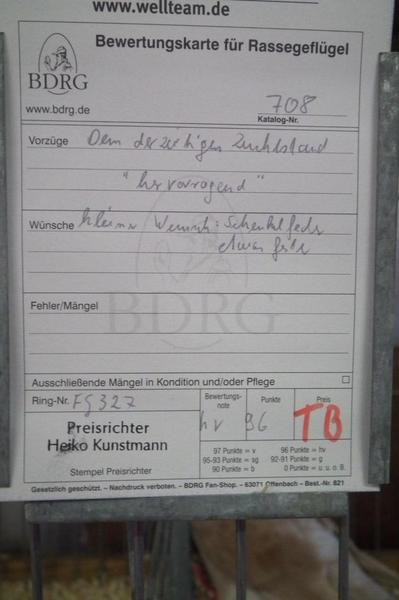 www.wellteam.de
Bewertungskarte für Rassegeflügel
BDRG
www.bdrg.de
708
Katalog-Nr.
Vorzüge Dem derzeitigen Zuchtstand
"hervorragend"
Wünsche kleiner Wunsch: Schenkelfeder
etwas
Fehler/Mängel
BDRG
Ausschließende Mängel in Kondition und/oder Pflege
Ring-Nr. FG 327
Bewertungsnote Punkte Preis
hv 96 TB
Preisrichter
Heiko Kunstmann
Stempel Preisrichter
97 Punkte = v 96 Punkte = hv
95-93 Punkte = sg 92-91 Punkte = g
90 Punkte = b 0 Punkte = u: u. o. B.
Gesetzlich geschützt. – Nachdruck verboten. – BDRG Fan-Shop. – 63071 Offenbach – Best.-Nr. 821